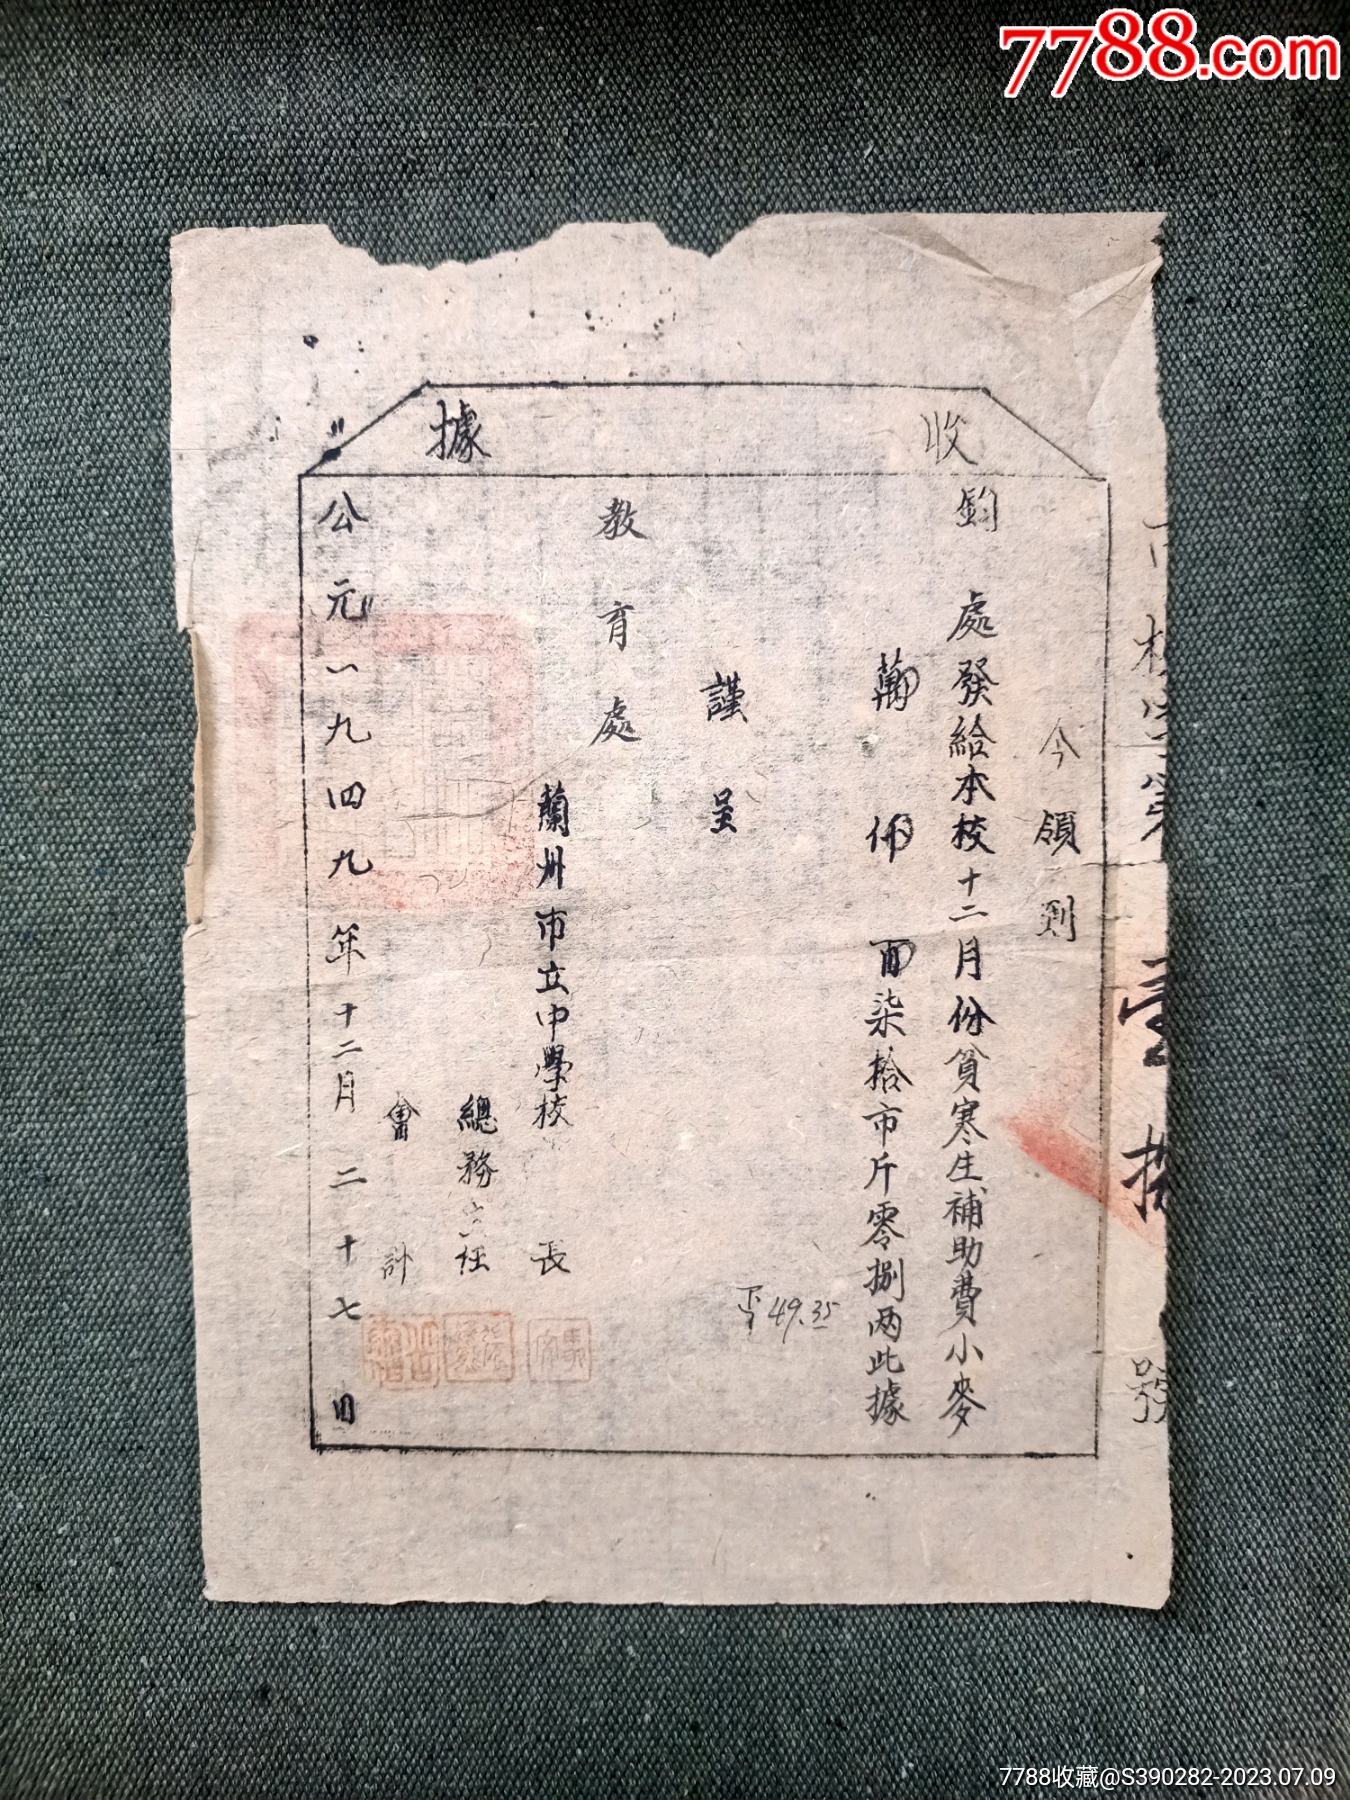 7788.com
收據
今領到
鈞處發給本校十二月份貧寒生補助費小麥
柒拾市斤零捌两此據
49.35
謹呈
教育處
蘭州市立中學校長
總務主任
會計
公元一九四九年十二月二十七日
號
7788收藏@S390282-2023.07.09